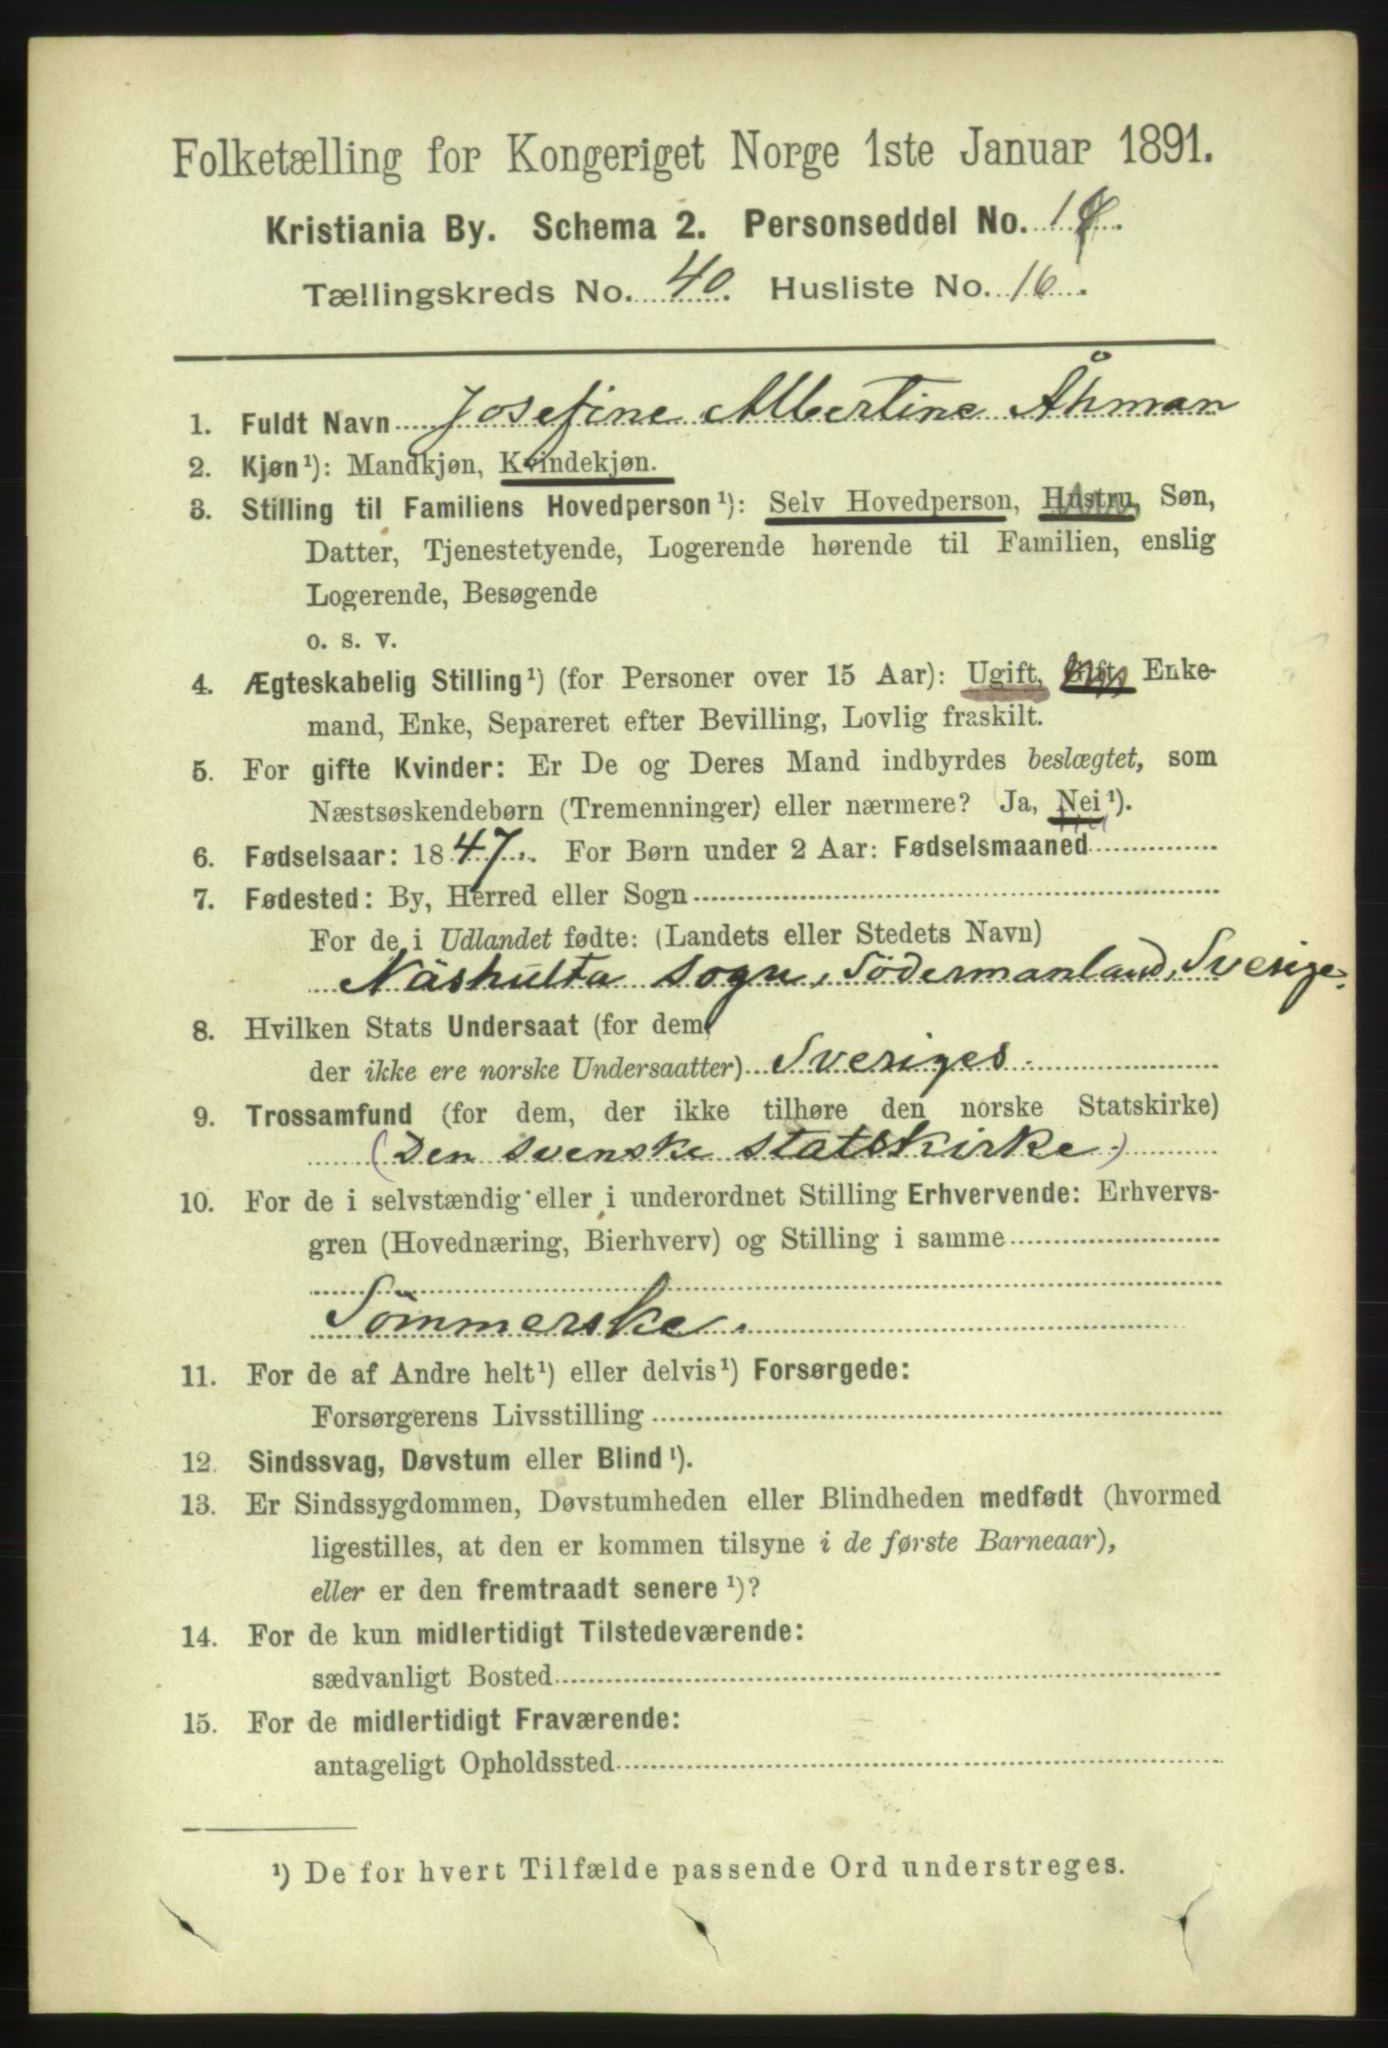 Folketælling for Kongeriget Norge 1ste Januar 1891.
Kristiania By. Schema 2. Personseddel No. 1
Tællingskreds No. 40. Husliste No. 16.
1. Fuldt Navn Josefine Albertine Åhman
2. Kjøn¹): Mandkjøn, Kvindekjøn.
3. Stilling til Familiens Hovedperson¹): Selv Hovedperson, Hustru, Søn,
Datter, Tjenestetyende, Logerende hørende til Familien, enslig
Logerende, Besøgende
o. s. v.
4. Ægteskabelig Stilling¹) (for Personer over 15 Aar): Ugift, Gift, Enke-
mand, Enke, Separeret efter Bevilling, Lovlig fraskilt.
5. For gifte Kvinder: Er De og Deres Mand indbyrdes beslægtet, som
Næstsøskendebørn (Tremenninger) eller nærmere? Ja, Nei¹).
6. Fødselsaar: 1847. For Børn under 2 Aar: Fødselsmaaned
7. Fødested: By, Herred eller Sogn
For de i Udlandet fødte: (Landets eller Stedets Navn)
Näshulta sogn, Södermanland, Sverige.
8. Hvilken Stats Undersaat (for dem,
der ikke ere norske Undersaatter) Sveriges.
9. Trossamfund (for dem, der ikke tilhøre den norske Statskirke)
(Den svenske statskirke.)
10. For de i selvstændig eller i underordnet Stilling Erhvervende: Erhvervs-
gren (Hovednæring, Bierhverv) og Stilling i samme
Sömmerske.
11. For de af Andre helt¹) eller delvis¹) Forsørgede:
Forsørgerens Livsstilling
12. Sindssvag, Døvstum eller Blind¹).
13. Er Sindssygdommen, Døvstumheden eller Blindheden medfødt (hvormed
ligestilles, at den er kommen tilsyne i de første Barneaar),
eller er den fremtraadt senere¹)?
14. For de kun midlertidigt Tilstedeværende:
sædvanligt Bosted
15. For de midlertidigt Fraværende:
antageligt Opholdssted
¹) De for hvert Tilfælde passende Ord understreges.